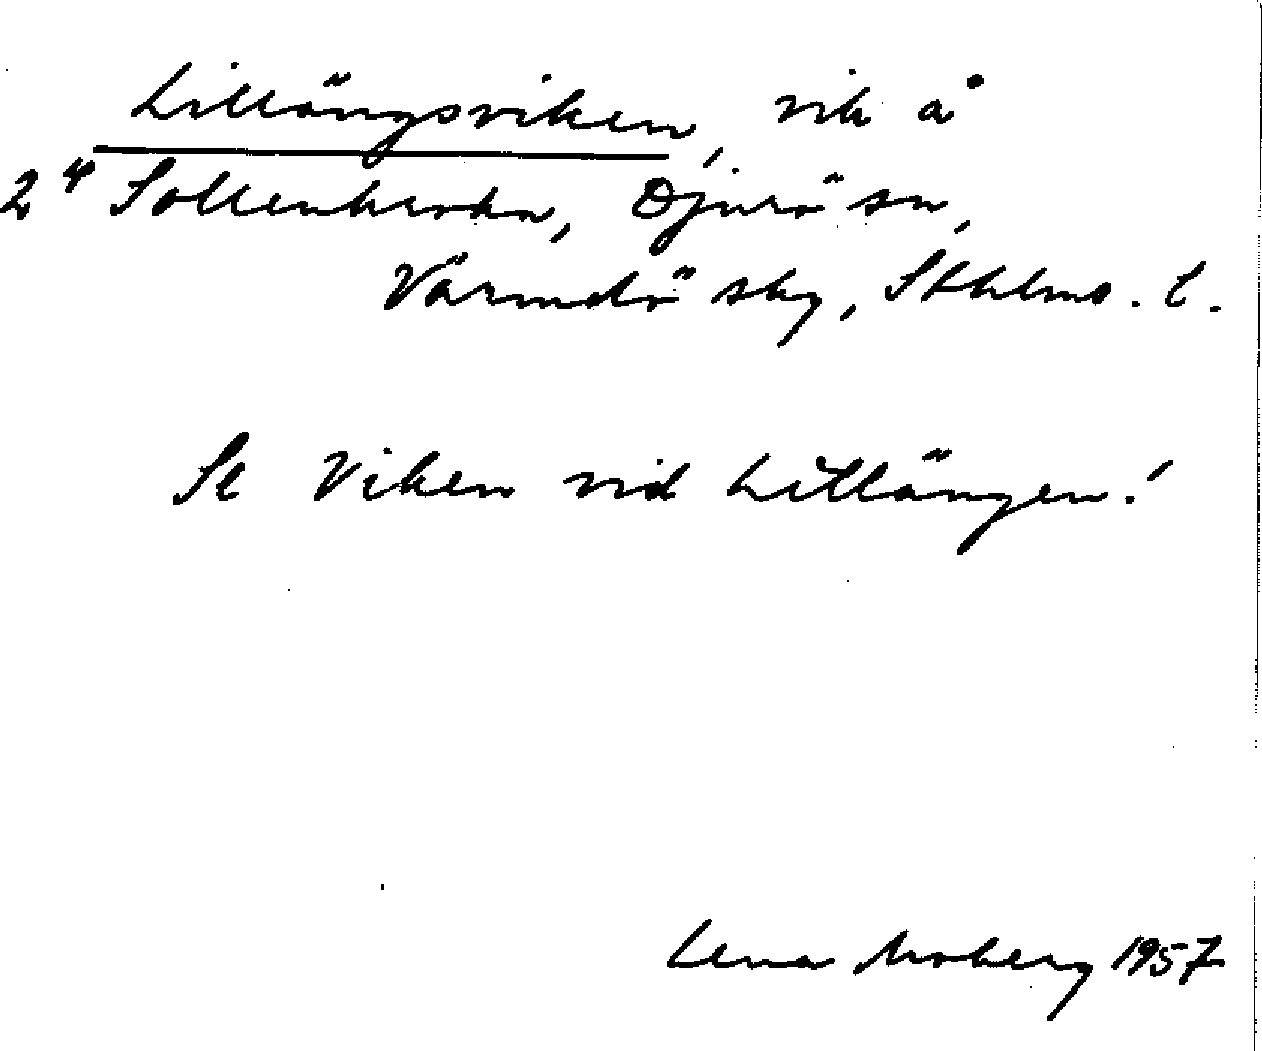 Lillängsviken, vik å
2⁴ Sollenkroka, Djurö sn,
Värmdö sky, Sthlms. l.
Se Viken vid Lillängen!
Lena Moberg 1957